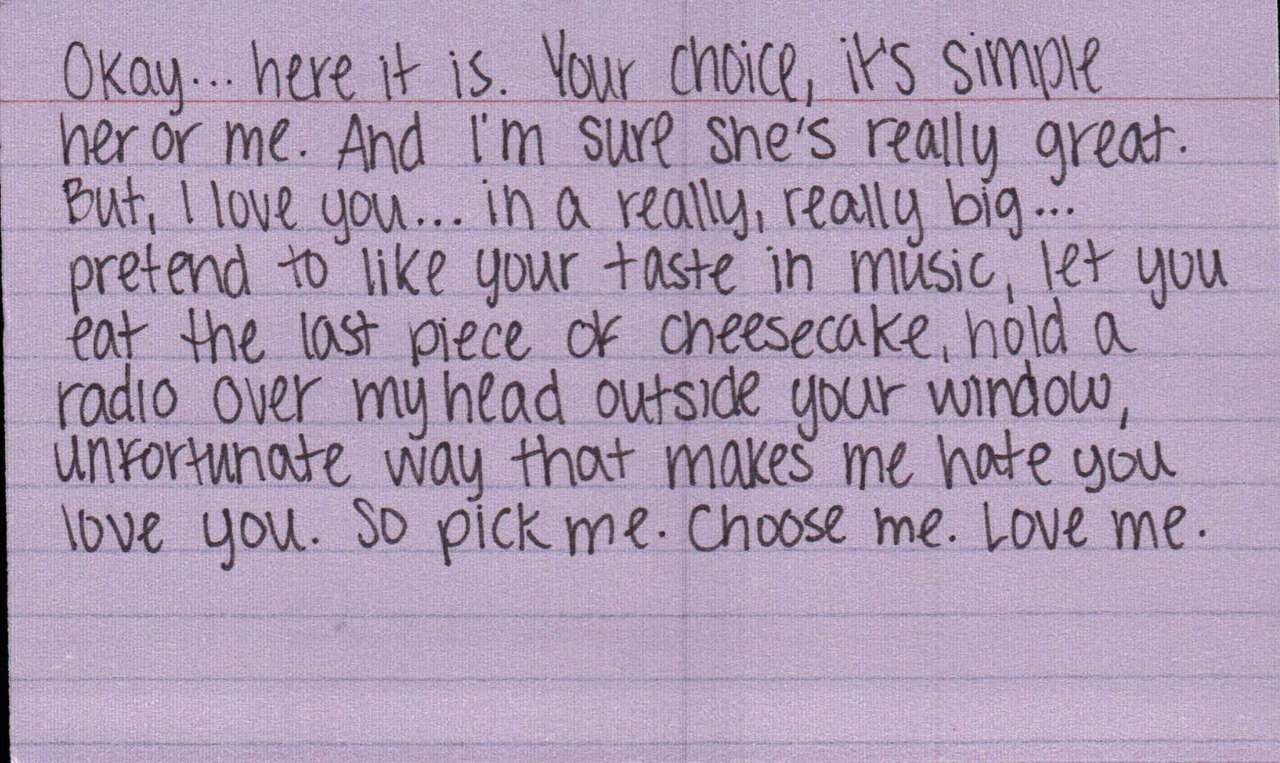 Okay... here it is. Your choice, it's simple
her or me. And I'm sure she's really great.
But, I love you... in a really, really big...
pretend to like your taste in music, let you
eat the last piece of cheesecake, hold a
radio over my head outside your window,
unfortunate way that makes me hate you
love you. So pick me. Choose me. Love me.